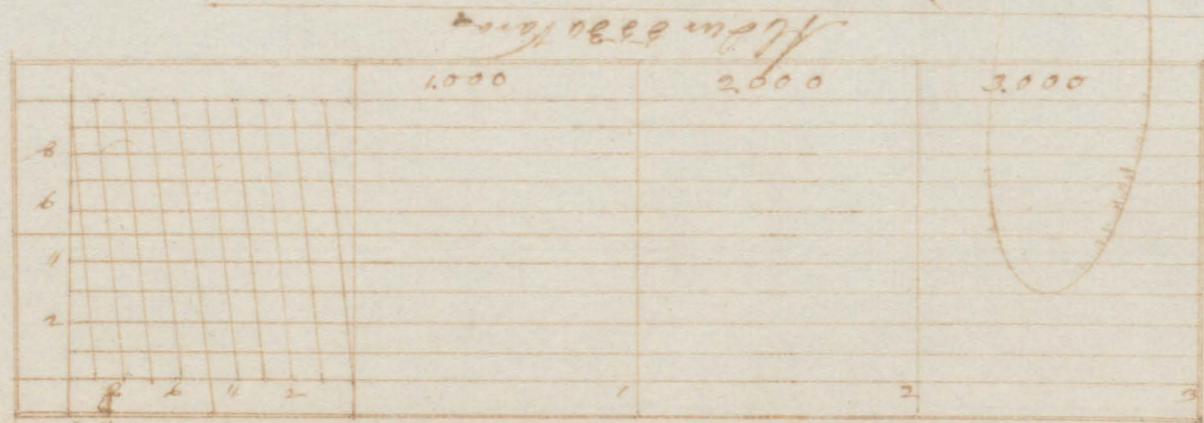 1.000 2.000 3.000
8
6
4
2
8 6 4 2 1 2 3